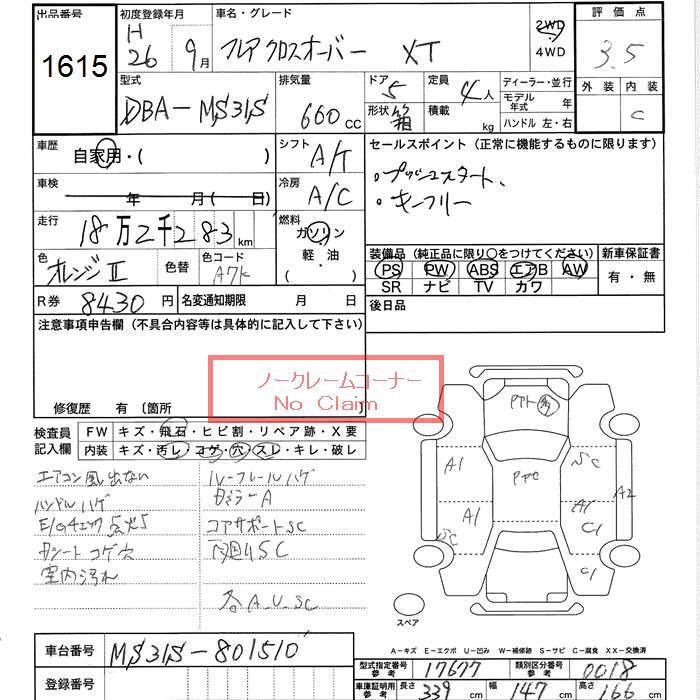 出品番号 初度登録年月 車名・グレード 評価点
1615 H26 9月 フレアクロスオーバー XT 2WD・4WD 3.5
型式 排気量 ドア 5 定員 4人 ディーラー・並行 外装 内装
DBA-MS31S 660cc 形状 箱 積載 kg モデル年式 年 C
ハンドル 左・右
車歴 自家用・( ) シフト A/T セールスポイント(正常に機能するものに限ります)
車検 年 月( 日) 冷房 A/C ・プッシュスタート、
・キーフリー
走行 18万2千283km 燃料 ガソリン 軽・油 ( ) 装備品(純正品に限り○をつけてください) 新車保証書
色 オレンジⅡ 色替 色コード PS PW ABS エアB AW 有・無
SR ナビ TV カワ
R券 8430円 名変通知期限 月 日 後日品
注意事項申告欄(不具合内容等は具体的に記入して下さい)
ノークレームコーナー
No Claim
修復歴 有〔箇所 〕
検査員記入欄 FW キズ・飛石・ヒビ割・リペア跡・X要
内装 キズ・汚レ・コゲ・穴・スレ・キレ・破レ
エアコン風出ない ルーフレールハゲ
ハンドルハゲ
E/Gチェック点灯 コアサポートSC
シートコゲ穴
室内汚れ
各A_U_SC
A1 A1 SC A1 C1 C1 A2 SC
スペア
A-キズ E-エクボ U-凹み W-補修跡 S-サビ C-腐食 XX-交換済
車台番号 MS31S-801510
登録番号
型式指定番号 参考 17677 類別区分番号 参考 0018
車庫証明用 参考 長さ 339cm 幅 147cm 高さ 166cm